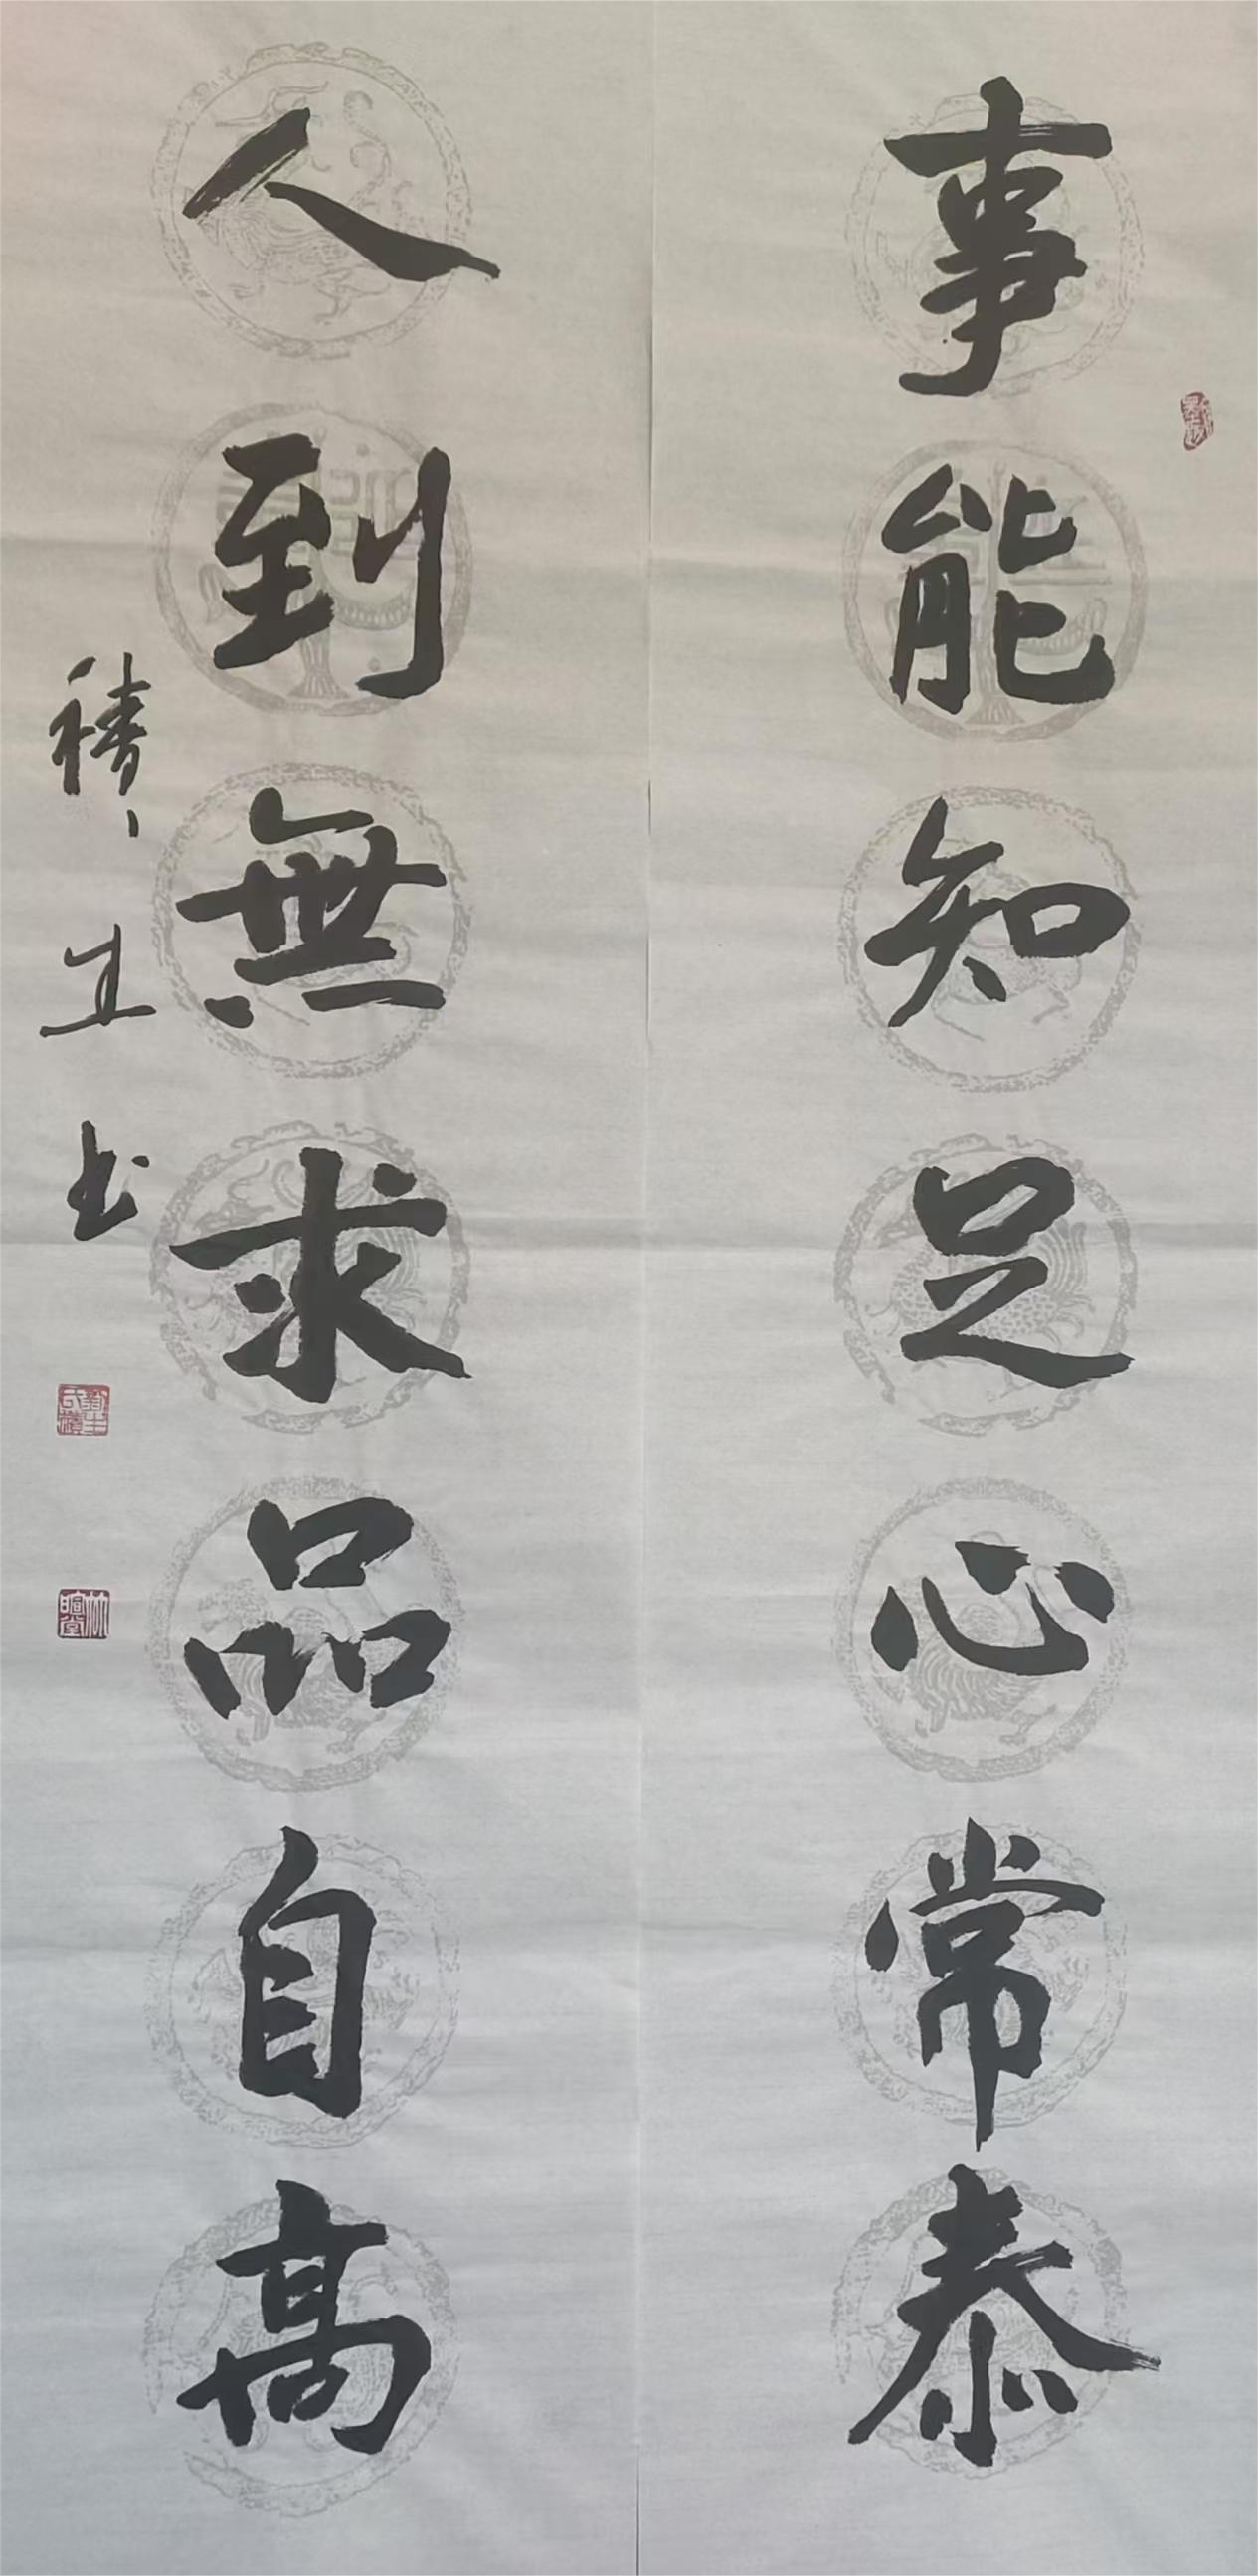 事能知足心常泰
人到無求品自高
積生书